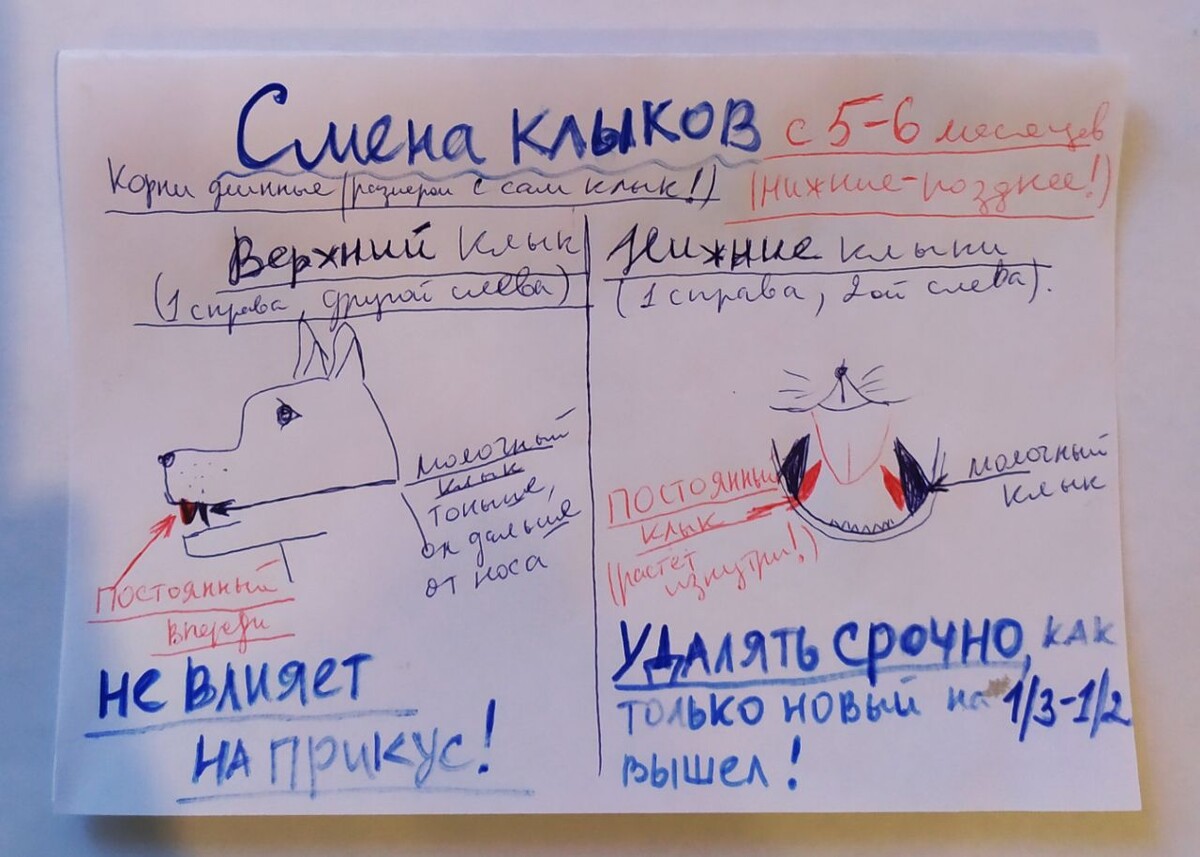 Смена клыков с 5-6 месяцев
Корни длинные (размером с сам клык!)
(нижние-позднее!)
Верхний клык
(1 справа, другой слева)
молочный
клык
тоньше,
он дальше
от носа
ПОСТОЯННЫЙ
впереди
НЕ ВЛИЯЕТ
НА ПРИКУС!
Нижние клыки
(1 справа, 2ой слева).
ПОСТОЯННЫЙ
клык
(растёт
изнутри!)
молочный
клык
УДАЛЯТЬ СРОЧНО, КАК
ТОЛЬКО НОВЫЙ на 1/3-1/2
ВЫШЕЛ!